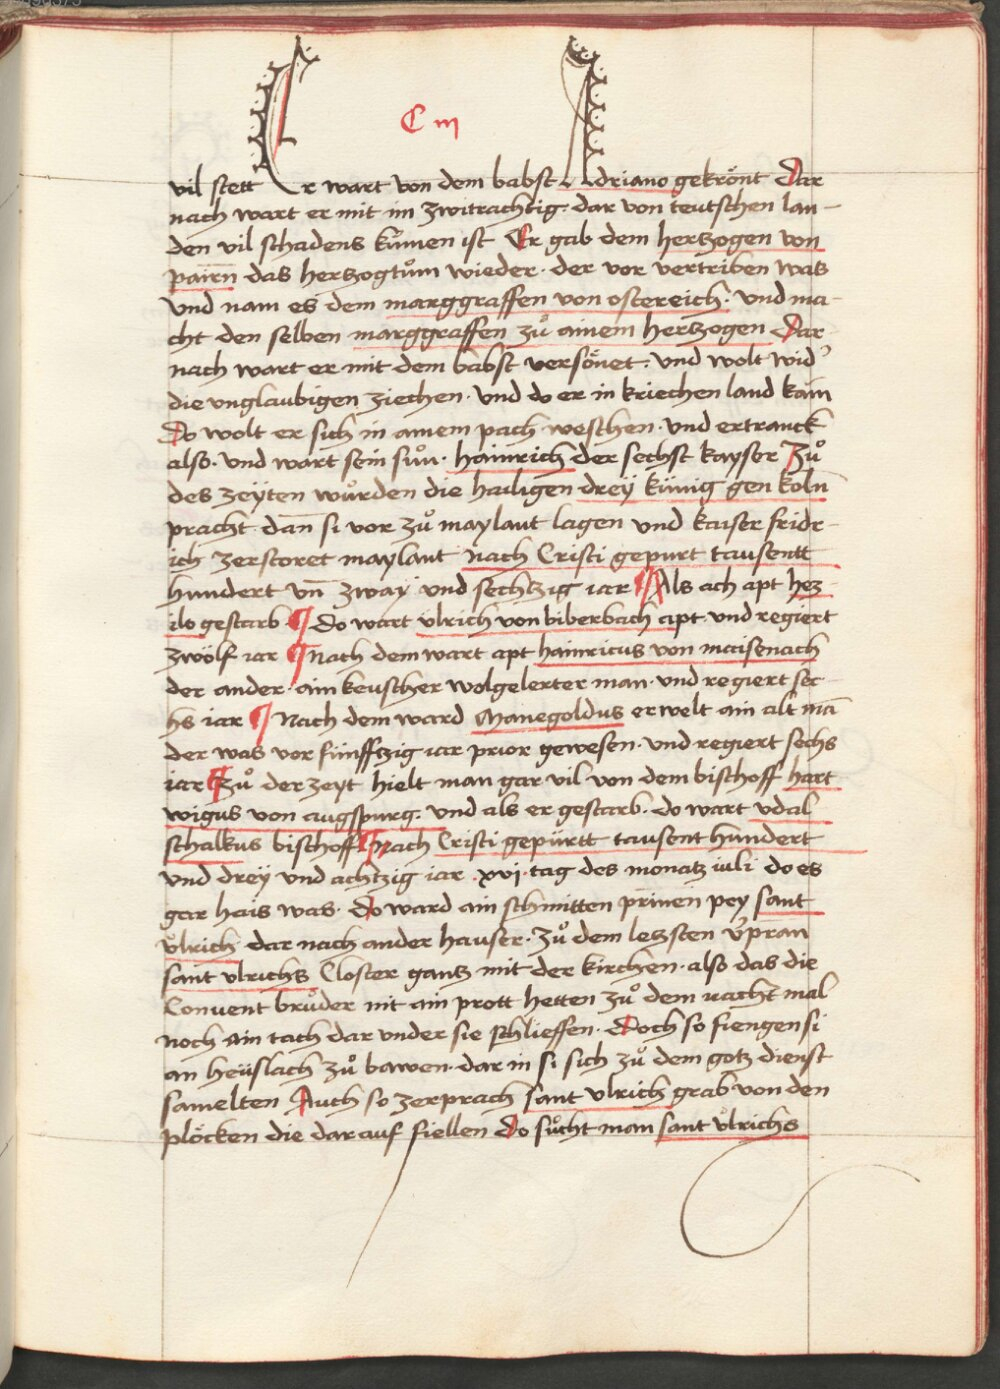 C iij
vil stett Er wart von dem babst Adriano gekrönt Dar
nach wart er mit im zwitrachtig · dar von teutschen lan-
den vil schadens kůmen ist Er gab dem hertzogen von
pairn̄ das hertzogtům wieder · der vor vertriben was
Vnd nam es dem marggraffen von ostereich · vnd ma-
cht den selben marggraffen zů ainem hertzogen Dar
nach wart er mit dem babst versönet · vnd wolt wid'
die vnglaubigen ziechen · vnd do er in kriechen land kam
Do wolt er sich in ainem pach weschen · vnd ertranck
also · vnd wart sein sůn · hainrich der sechst kayser Zů
des zeÿten wůrden die hailigen dreÿ künig gen koln
pracht · dan̄ si vor zů maylant lagen vnd kaiser frider-
ich zerstoret maylant Nach Cristi gepurt tausentt
hundert vn̄ zway vnd sechtzig iar ¶ Als ach apt hez-
ilo gestarb · ¶ Do wart ůlrich von biberbach apt · vnd regiert
zwölf iar ¶ Nach dem wart apt hainricus von maisenach
der ander · ain keuscher wolgelerter man · vnd regiert sec-
hs iar ¶ Nach dem ward Manegoldus erwelt ain alt mā
der was vor fünfftzig iar prior gewesen · vnd regiert sechs
iar ¶ Zů der zeyt hielt man gar vil von dem bischoff hart
wigus von augspurg · vnd als er gestarb · do wart vdal
schalkus bischoff ¶ Nach Cristi gepürtt tausent hundert
vnd dreÿ vnd achtzig iar · xvj · tag des monatz iuli do es
gar hais was · do ward ain schmitten prīnen pey sant
ůlrich dar nach ander hauser · zů dem letsten v'pran
sant vlrichs Closter gantz mit der kirchen · also das die
Convent brůder nit ain prott hetten zů dem nachtmal
noch ain tach dar vnder sie schlieffen · Doch so fiengen si
an heüslach zů bawen · dar in si sich zů dem gotz dienst
samelten Auch so zerprach sant vlrich grab von den
plöcken die darauf fiellen Do sůcht man sant ůlrichs